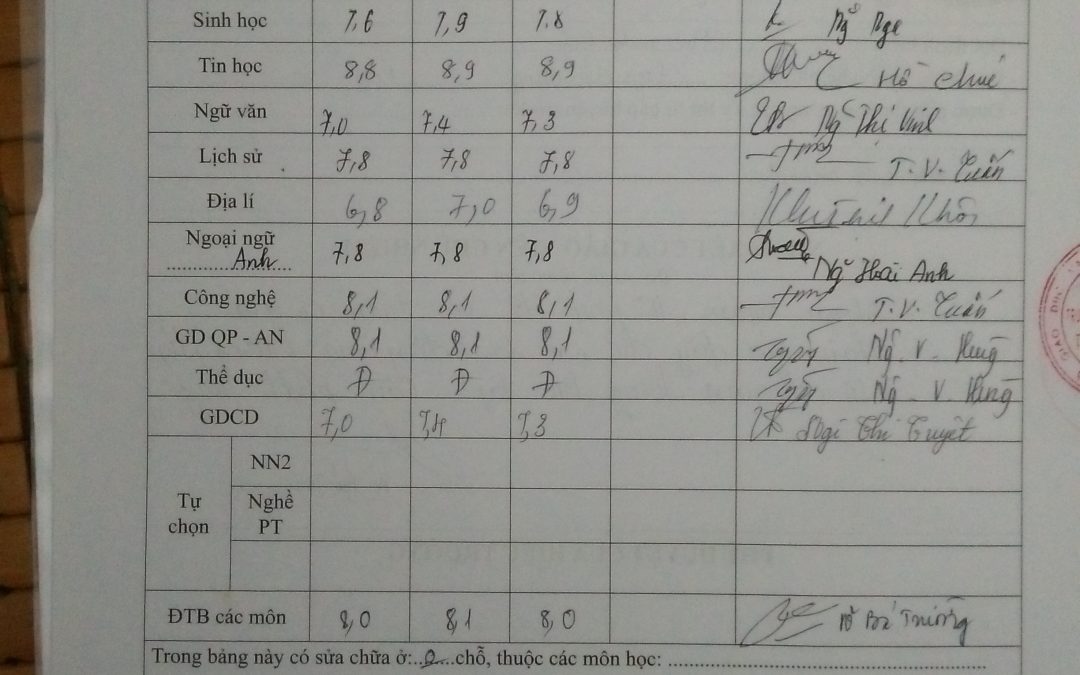 Sinh học 7,6 7,9 7.8
Tin học 8,8 8,9 8,9 Hồ
Ngữ văn 7,0 7,4 7,3 Ng Thị Vinh
Lịch sử 7,8 7,8 7,8 T. V. Tuấn
Địa lí 6,8 7,0 6,9
Ngoại ngữ
Anh 7,8 7,8 7,8 Ng Hoài Anh
Công nghệ 8,1 8,1 8,1 T. V. Tuấn
GD QP - AN 8,1 8,1 8,1 Ng. V. Hùng
Thể dục Đ Đ Đ Ng. V. Hùng
GDCD 7,0 7,4 7,3 Thị Tuyết
NN2
Tự chọn
Nghề PT
ĐTB các môn 8,0 8,1 8,0 Bá Trường
Trong bảng này có sửa chữa ở:..0....chỗ, thuộc các môn học: ............
GIÁO DỤC